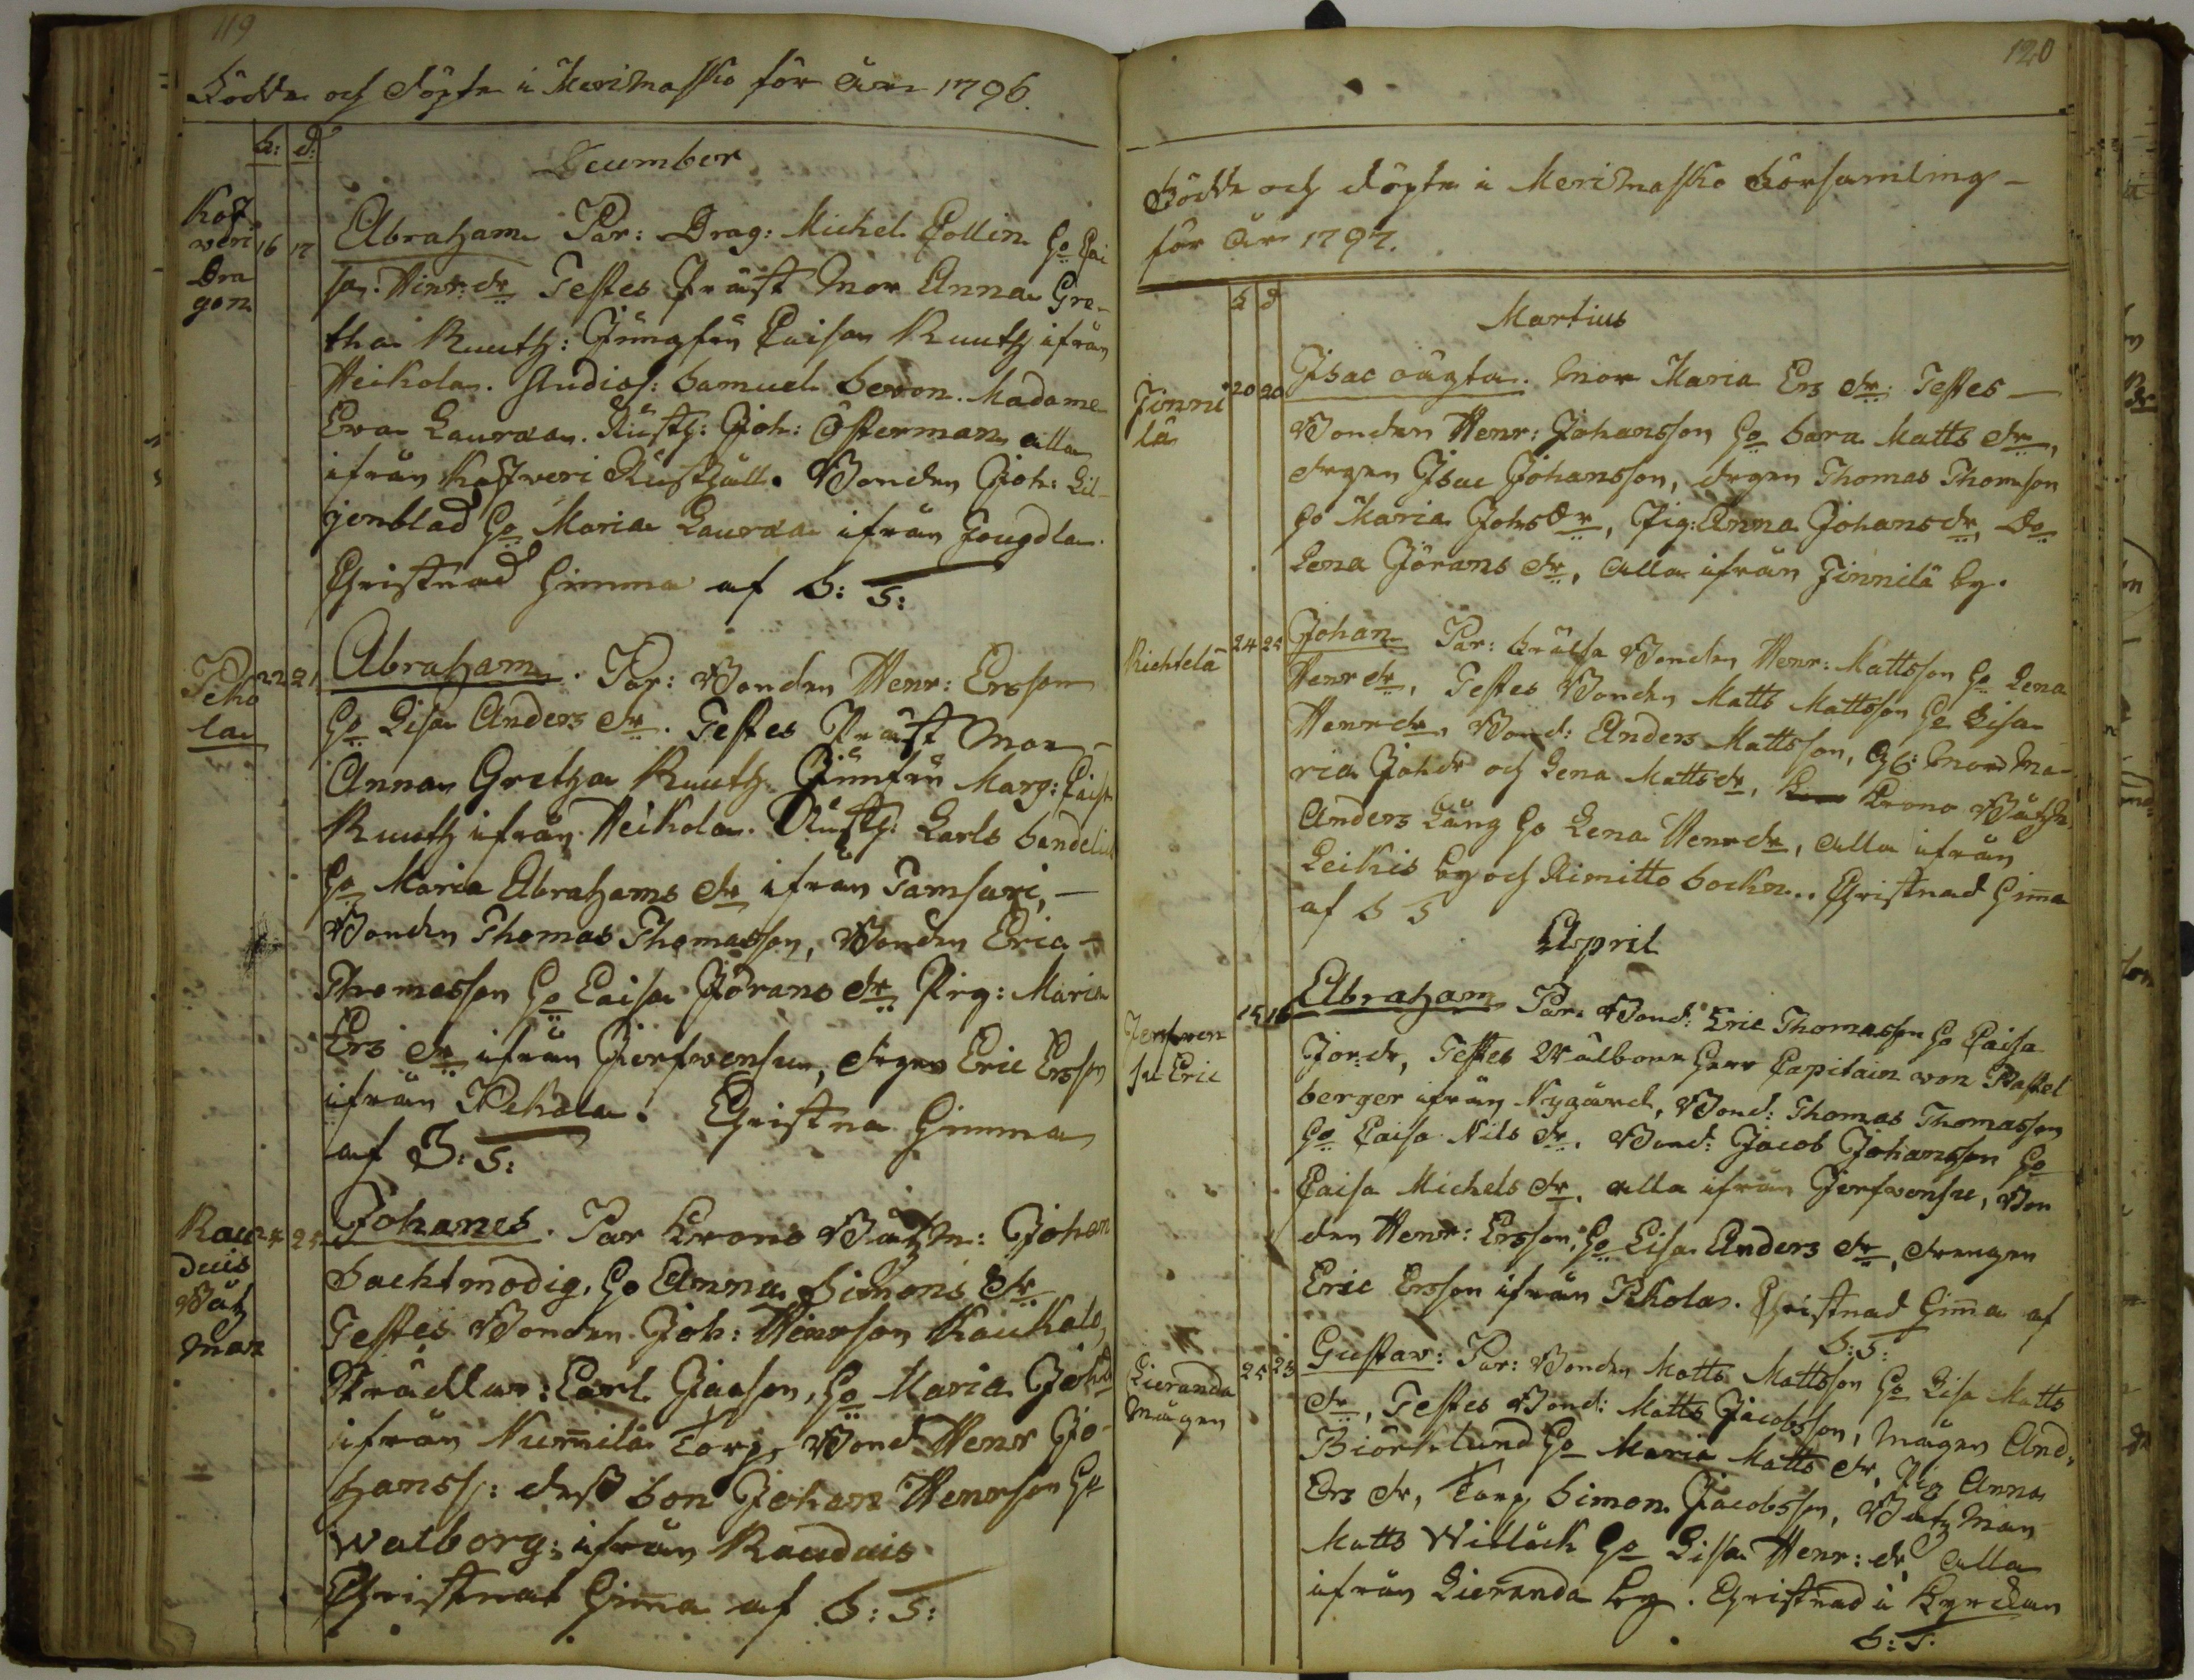 119
Födde och döpte i Merimasko för åre 1796.
f: d:
December
Kos
veri 16 17 Abraham Par: Drag: Michel Collin Ho Cai
Dra
gon
sa Hinr: dr Testes Präst Mor Anna Gre-
tha Ruuth: Jungfru Caisa Ruuth ifrån
Heikola. Studios: Samuel Madame
Eva Laurææ. Rusth: Joh: Österman alla
ifrån Kosveri Rusthåll. Bonden Joh: Lil-
jenblad Ho Maria Lauræa ifrån
Christnad hemma af S: T:
Peko
la 22 21 Abraham. Par: Bonden Henr: Ersson
Ho Lisa Anders dr. Testes Präst Mor
Anna Gretha Ruuth Jumfru Marg: Caisa
Ruuth ifrån Heikola. Rusth: Carls Sandelin
Ho Maria Abrahams dr ifrån Tamsari,
Bonden Thomas Thomasson, Bonden Eric
Thomasson Ho Caisa Jörans dr Pig: Maria
Ers dr ifrån Jerfvensu, drgen Eric Ersson
ifrån Pekola. Christna hemma
af S: T:
Rau
duis
Båtz
man 24 25 Johanes. Par Krono Båtzm: Johan
Sachtmodig, Ho Anna Simons dr
Testes Bonden Joh: Henrson Kaukola,
Skräddar: Carl Jacson, Ho Maria Joh dr
ifrån Numila Torp, Bond Henr Jo-
hanss: dess Son Johan Henrson Ho
Walborg: ifrån Rauduis
Christnat hemma af S: T:
120
Födde och döpte i Merimasko Församling
för år 1797.
f d
Martius
Jinni
lä 20 20 Isac oägta. Mor Maria Ers dr: Testes
Bonden Henr: Johansson Ho Sara Matts dr,
drgen Isac Johansson, drgen Thomas Thomson
Ho Maria Johs dr, Pig: Anna Johans dr, Do
Lena Jörans dr, alla ifrån Jinnilä by.
Richtelä 24 25 Johan Par: Frälse Bonden Henr: Mattsson Ho Lena
Henr dr, Testes Bonden Matts Mattsson Ho Lisa
Henr dr, Bond: Anders Mattsson, Mor Ma-
ria Joh dr och Lena Matts dr, Krono Båtzm
Anders Lång Ho Lena Henr dr, alla ifrån
Leikis by och Rimitto Sockn.. Christnad hema
af S T
April
Jerfven
su Eric 15 16 Abraham Par. Bond: Eric Thomasson Ho Caisa
Jor dr, Testes Wälborn Herr Capitain von Rastel
berger ifrån Nygård, Bond: Thomas Thomasson
Ho Caisa Nils dr. Bond: Jacob Johansson Ho
Caisa Michels dr. alla ifrån Jerfvensu, Bon
den Henr: Ersson, Ho Lisa Anders dr, drengen
Eric Ersson ifrån Pekola. Christnad hema af
S: T:
Lieranda
Mågen 25 25 Gustav: Par: Bonden Matts Mattsson Ho Lisa Matts
dr, Testes Bond: Matts Jacobsson, Mågen And.
Biörklund Ho Maria Matts dr, Pig Anna
Ers dr, Torp Simon Jacobsson, Båtzman
Matts Willäck Ho Lisa Henr: dr alla
ifrån Lieranda by. Christnad i Kyrckan
S: T: